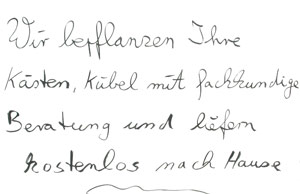 Wir bepflanzen Ihre
Kästen, Kübel mit fachkundige
Beratung und liefern
kostenlos nach Hause